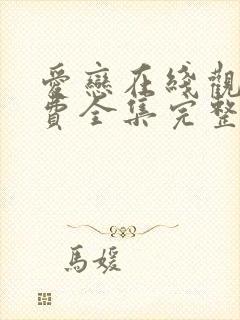 愛戀在綫觀
費全集完整
馬媛